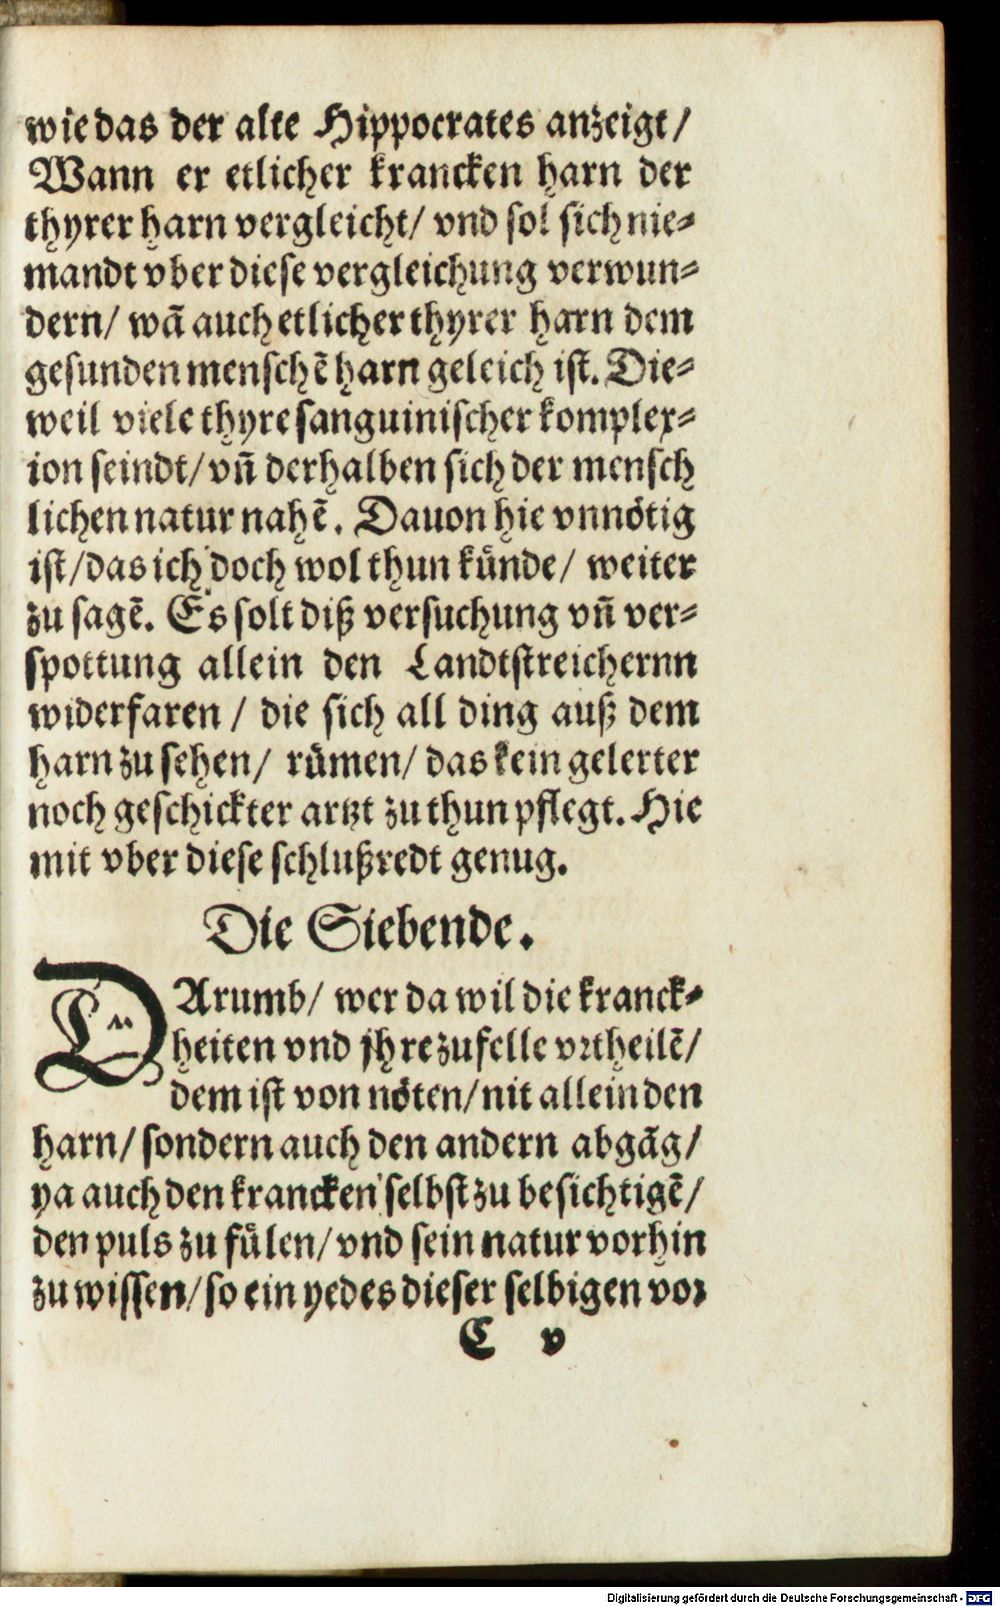 wie das der alte Hippocrates anzeigt/
Wann er etlicher krancken harn der
thyrer harn vergleicht/ vnd sol sich nie⸗
mandt vber diese vergleichung verwun⸗
dern/ wā auch etlicher thyrer harn dem
gesunden menschē harn geleich ist. Die⸗
weil viele thyre sanguinischer komplex⸗
ion seindt/ vñ derhalben sich der mensch
lichen natur nahē. Dauon hie vnnötig
ist/ das ich doch wol thun künde/ weiter
zu sagē. Es solt diß versuchung vñ ver⸗
spottung allein den Landtstreichernn
widerfaren / die sich all ding auß dem
harn zu sehen/ rümen/ das kein gelerter
noch geschickter artzt zu thun pflegt. Hie
mit vber diese schlußredt genug.
Die Siebende.
DArumb/ wer da wil die kranck⸗
heiten vnd jhre zufelle vrtheilē/
dem ist von nöten/ nit allein den
harn/ sondern auch den andern abgāg/
ya auch den krancken selbst zu besichtigē/
den puls zu fülen/ vnd sein natur vorhin
zu wissen/ so ein yedes dieser selbigen vor
C v
Digitalisierung gefördert durch die Deutsche Forschungsgemeinschaft - DFG